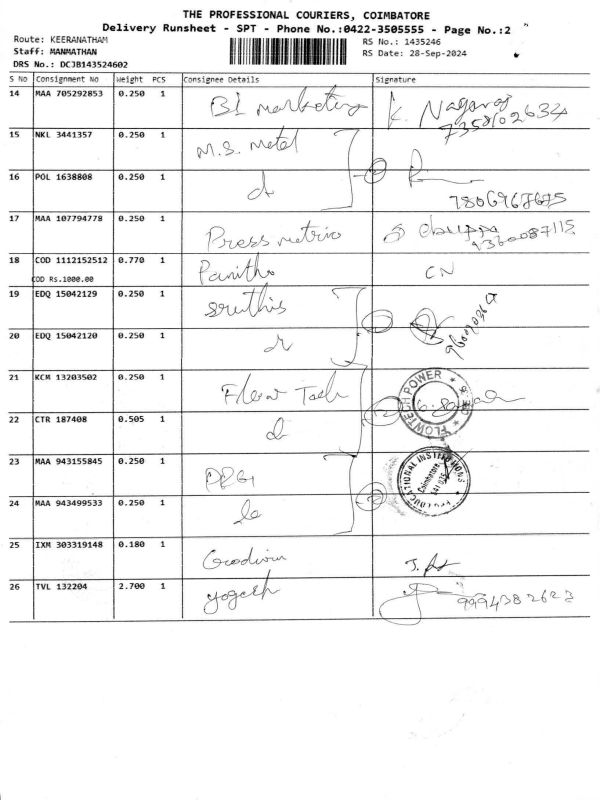 THE PROFESSIONAL COURIERS, COIMBATORE
Delivery Runsheet - SPT - Phone No.:0422-3505555 - Page No.:2
Route: KEERANATHAM
RS No.: 1435246
Staff: MANMATHAN
RS Date: 28-Sep-2024
DRS No.: DCJB143524602
S No Consignment No Weight PCS Consignee Details Signature
14 MAA 705292853 0.250 1 BI marketing K. Nagaraj
7358102634
15 NKL 3441357 0.250 1 M.S. Metal
16 POL 1638808 0.250 1 do
7806967675
17 MAA 107794778 0.250 1 Pressmetric
9360087115
18 COD 1112152512 0.770 1 Panitha CN
COD RS.1000.00
19 EDQ 15042129 0.250 1 Sruthis
20 EDQ 15042120 0.250 1
21 KCM 13203502 0.250 1 Flow Tech
FLOWTECH POWER
22 CTR 187408 0.505 1 do
23 MAA 943155845 0.250 1
EDUCATIONAL INSTITUTIONS
Coimbatore
641 035
24 MAA 943499533 0.250 1
25 IXM 303319148 0.180 1 Goodwin
26 TVL 132204 2.700 1 Yogesh 9994382623